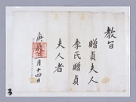 教旨
贈貞夫人
李氏贈貞
夫人者
月十四日